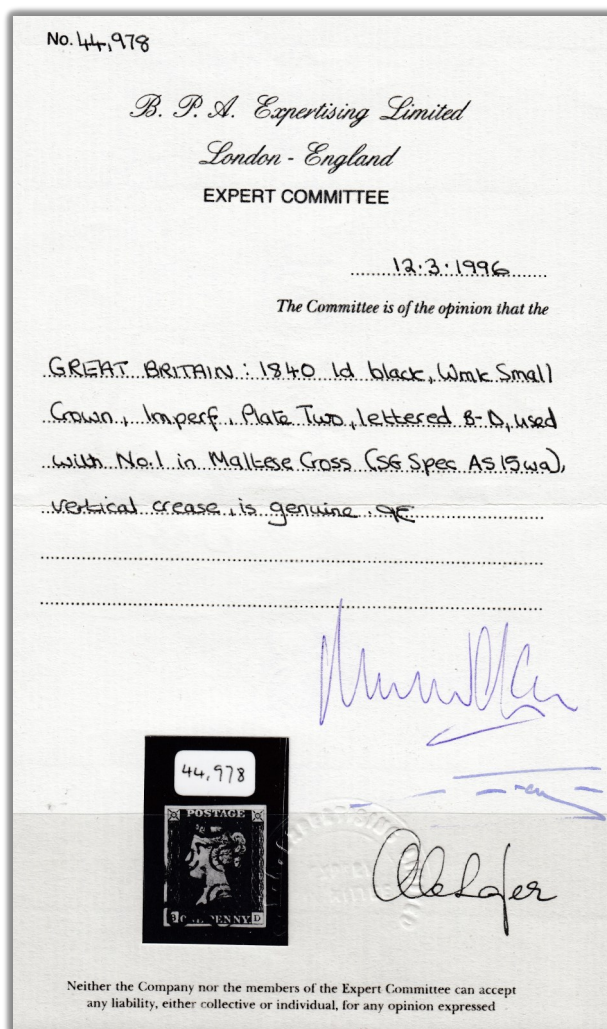 No. 44,978
B. P. A. Expertising Limited
London - England
EXPERT COMMITTEE
12.3.1996
The Committee is of the opinion that the
GREAT BRITAIN: 1840 1d black, Wmk Small
Crown, Imperf, Plate Two, lettered B-D, used
with No.1 in Maltese Cross (SG Spec AS15wa),
vertical crease, is genuine.
44,978
POSTAGE
B ONE PENNY D
Neither the Company nor the members of the Expert Committee can accept
any liability, either collective or individual, for any opinion expressed